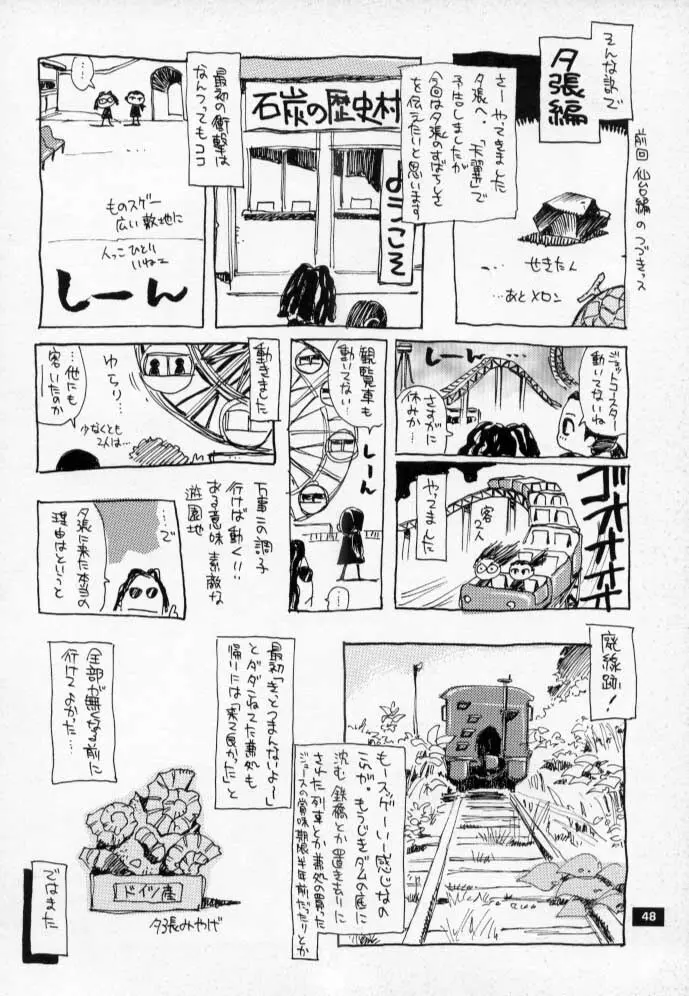 そんな訳で
夕張編
前回 仙台編の つづきっス
さーやってきました
夕張へ。「天翼」で
予告しましたが
今回は夕張のすばらしさ
を伝えたいと思います。
せきたん
…あとメロン
石炭の歴史村
ようこそ
最初の衝撃は
なんつってもココ
……
ものスゲー
広い敷地に
人っこひとり
いねェ
しーん
ジェットコースター
動いてないね
さすがに
休みか…
しーん
ゴオオオオ
客2人
やってました
観覧車も
動いてない
しーん
……
動きました
ゆらり…
…他にも
客いたのか
少なくとも
2人は…
万事この調子
行けば動く!!
ある意味 素敵な
遊園地
…で
夕張に来た本当の
理由はというと
廃線跡!
もースゲーいー感じなの
これが。もうじきダムの底に
沈む鉄橋とか置き去りに
された列車とか
ジュースの賞味期限半年前だったりとか
最初「きっとつまんないよー」
とダダこねてた
帰りには「来て良かった」と
全部が無くなる前に
行けてよかった…
ドイツ産
夕張みやげ
ではまた
48